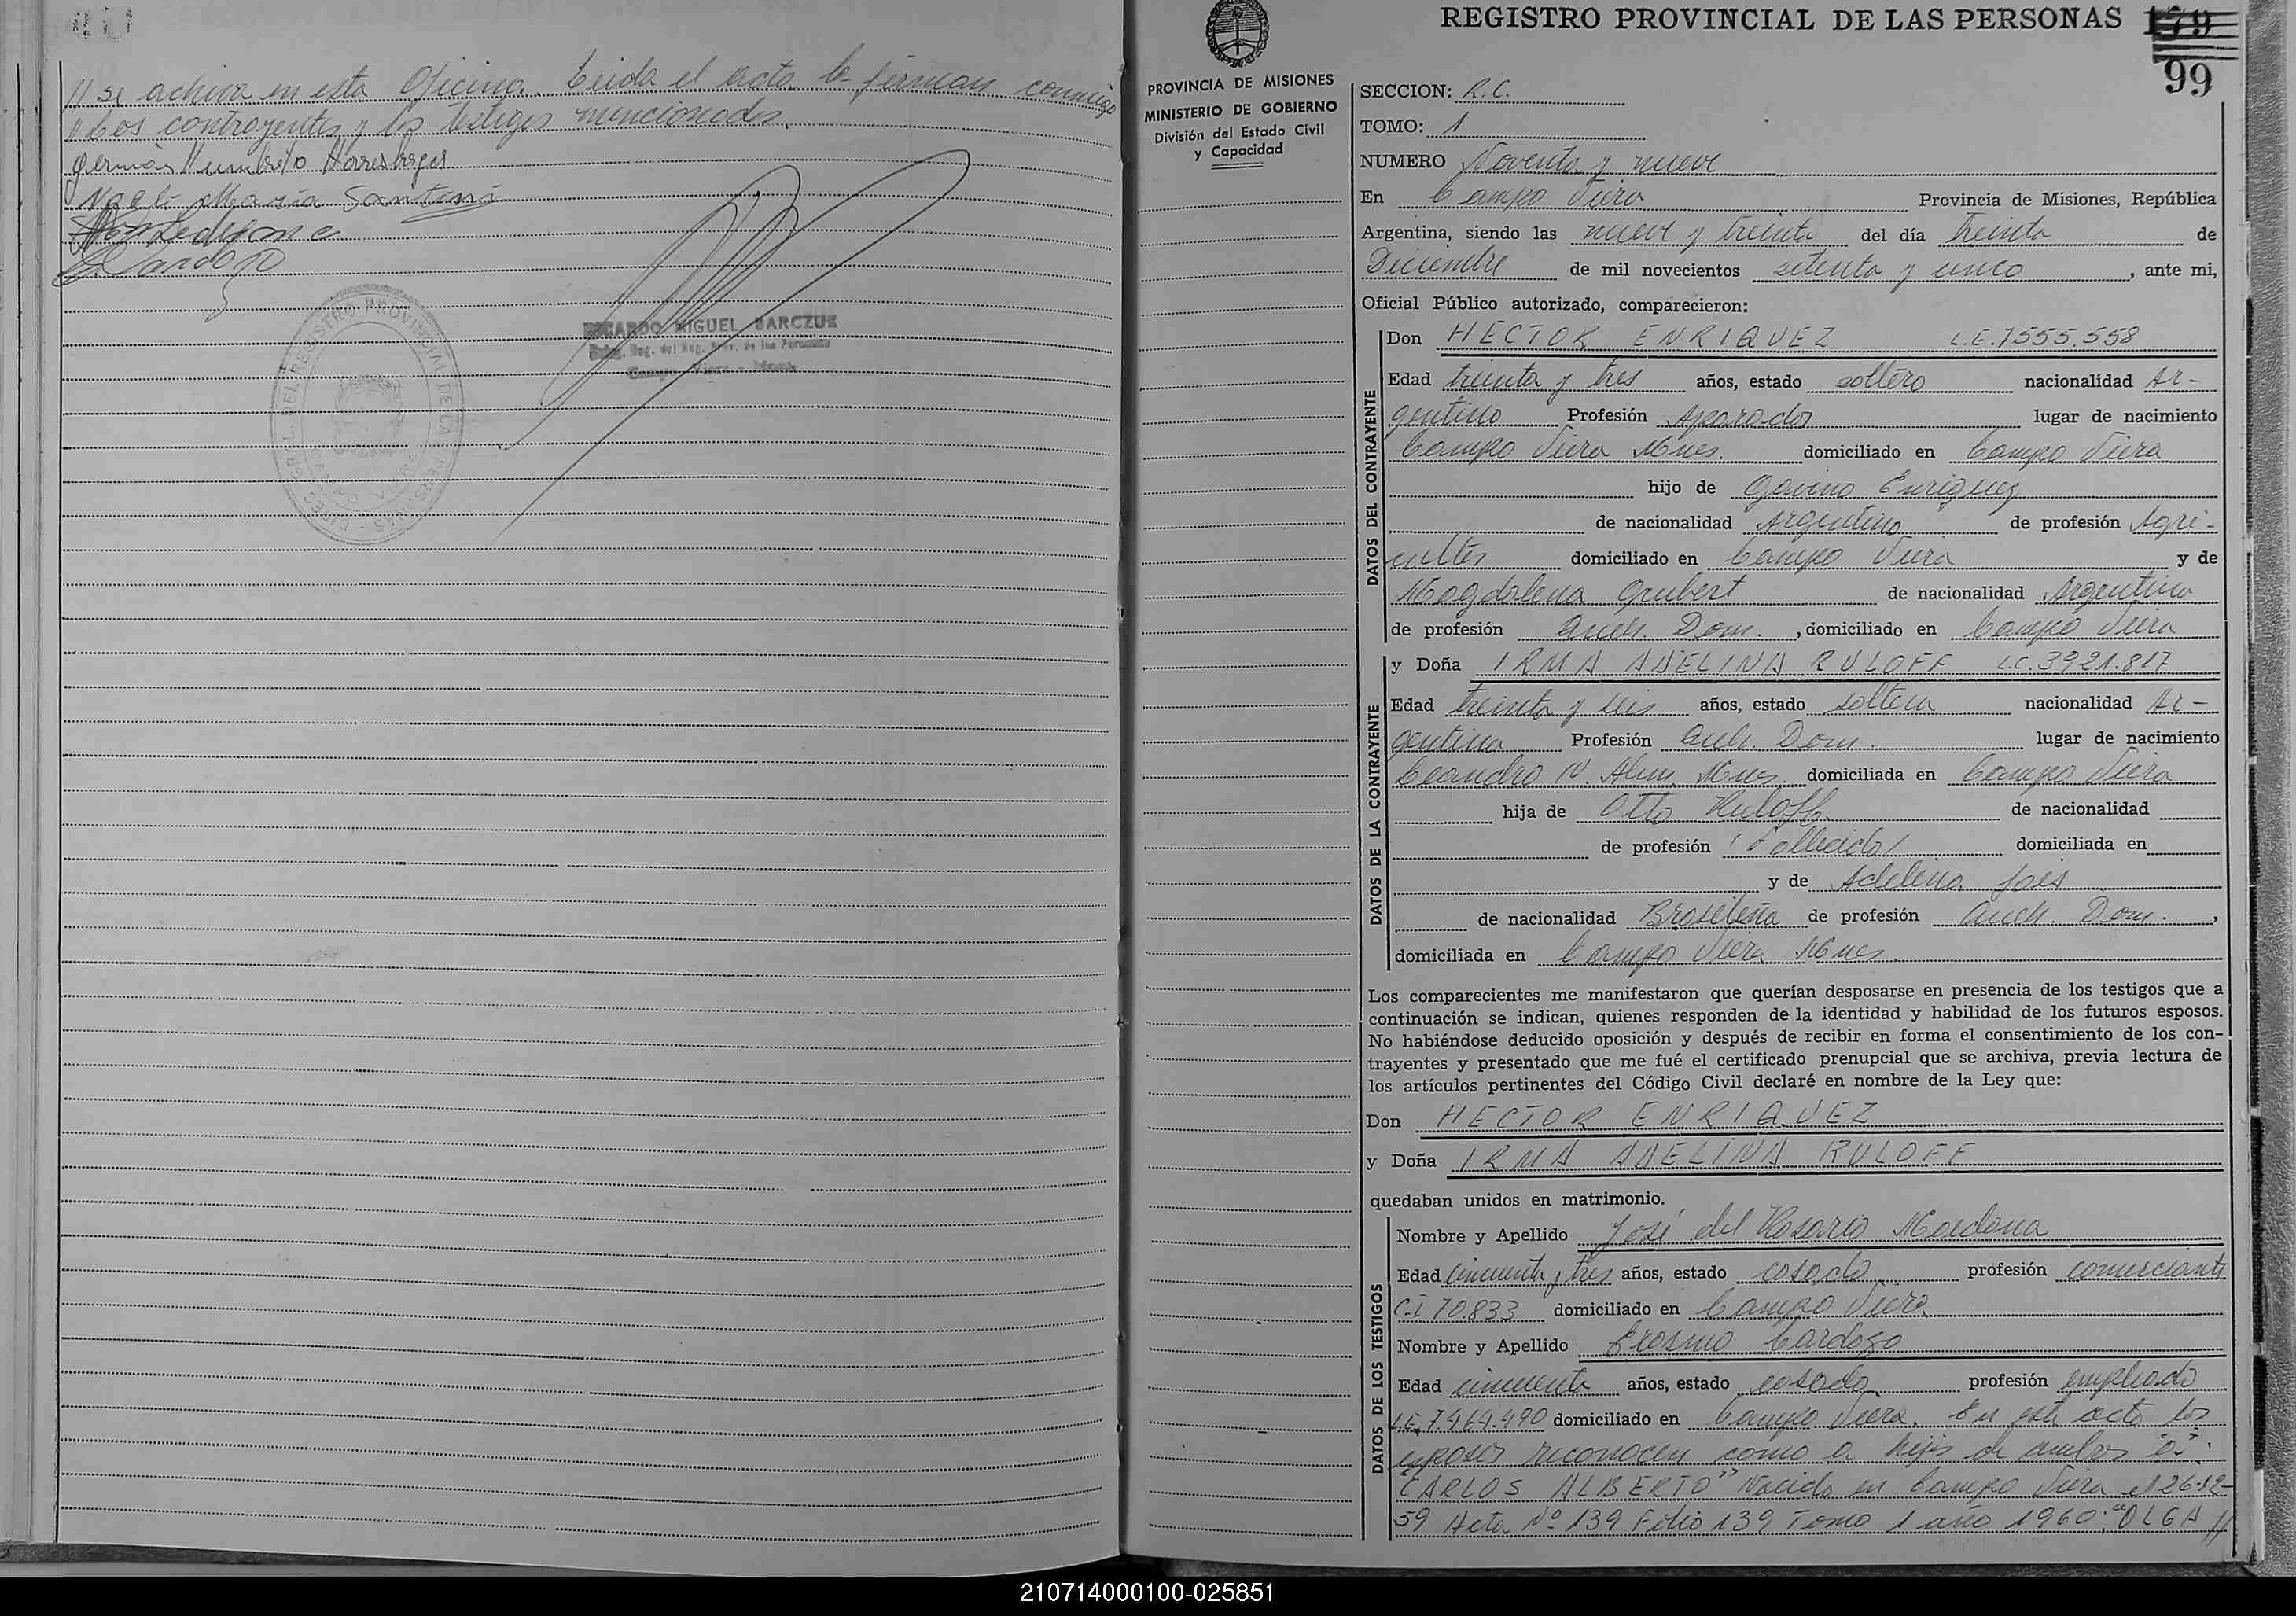 // se achiva en esta Oficina. Leida el acta la firman conmigo
// Los contrayentes y los testigos mencionados.
Maria Santini
Cardozo
RICARDO MIGUEL BARCZUK
REGISTRO PROVINCIAL DE LAS PERSONAS
99
PROVINCIA DE MISIONES
MINISTERIO DE GOBIERNO
División del Estado Civil
y Capacidad
SECCION: R.C.
TOMO: 1
NUMERO Noventa y nueve
En Campo Viera Provincia de Misiones, República
Argentina, siendo las nueve y treinta del día treinta de
Diciembre de mil novecientos setenta y cinco, ante mi,
Oficial Público autorizado, comparecieron:
DATOS DEL CONTRAYENTE
Don HECTOR ENRIQUEZ L.E.7555.558
Edad treinta y tres años, estado soltero nacionalidad Ar-
gentino Profesión lugar de nacimiento
Campo Viera Mnes. domiciliado en Campo Viera
hijo de Gavino Enriquez
de nacionalidad Argentino de profesión Agri-
cultor domiciliado en Campo Viera y de
Magdalena Grubert de nacionalidad Argentina
de profesión Dom. , domiciliado en Campo Viera
DATOS DE LA CONTRAYENTE
y Doña IRMA ADELINA RULOFF L.C.3921.817
Edad treinta y seis años, estado soltera nacionalidad Ar-
gentina Profesión Dom. lugar de nacimiento
Leandro N. Alem Mnes. domiciliada en Campo Viera
hija de Otto Ruloff de nacionalidad
de profesión (Fallecido) domiciliada en
y de Adelina
de nacionalidad Brasileña de profesión Dom. ,
domiciliada en Campo Viera Mnes.
Los comparecientes me manifestaron que querían desposarse en presencia de los testigos que a
continuación se indican, quienes responden de la identidad y habilidad de los futuros esposos.
No habiéndose deducido oposición y después de recibir en forma el consentimiento de los con-
trayentes y presentado que me fué el certificado prenupcial que se archiva, previa lectura de
los artículos pertinentes del Código Civil declaré en nombre de la Ley que:
Don HECTOR ENRIQUEZ
y Doña IRMA ADELINA RULOFF
quedaban unidos en matrimonio.
DATOS DE LOS TESTIGOS
Nombre y Apellido José del Rosario
Edad cincuenta y tres años, estado casado profesión comerciante
C.I 70.833 domiciliado en Campo Viera
Nombre y Apellido Erasmo Cardozo
Edad cincuenta años, estado casado profesión empleado
L.E. 7.464.490 domiciliado en Campo Viera. En este acto los
esposos reconocen como a hijos de ambos a:
"CARLOS ALBERTO" Nacido en Campo Viera el 26-12-
59 Acta Nº 139 Folio 139 Tomo 1 año 1960: "OLGA //
210714000100-025851